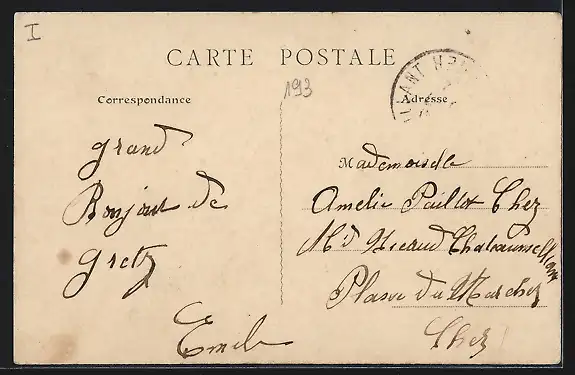 I
CARTE POSTALE
193
Correspondance
Adresse
grand
Bonjour de
gretz
Emile
Mademoiselle
Amelie Paillot Chez
Md
Place du Marchez
Chez